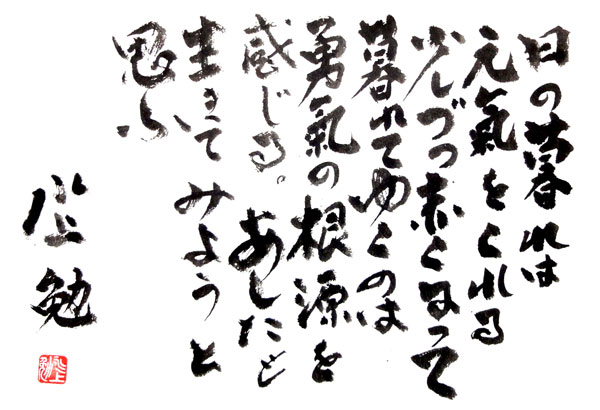 日の暮れは
元氣をくれる
少しづつ赤くなって
暮れてゆくのは
勇氣の根源を
感じる。あしたを
生きてみようと
思ふ
水上勉